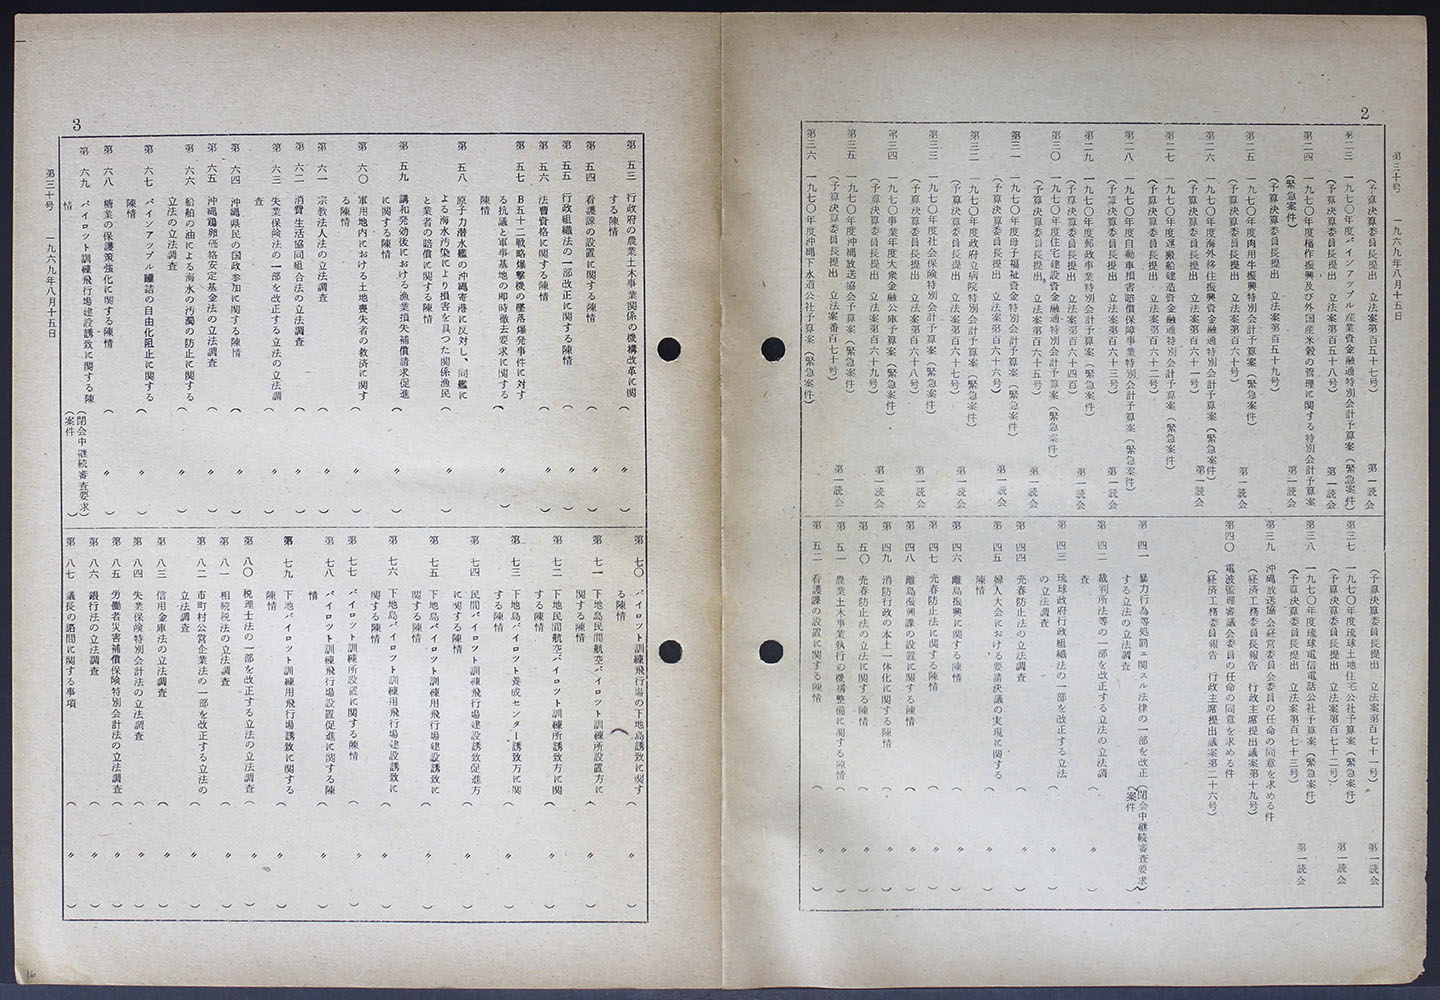 2
第三十号　一九六九年八月十五日
（予算決算委員長提出　立法案第百五十七号）　第一読会
第二三　一九七〇年度パインアップル産業資金融通特別会計予算案（緊急案件）
（予算決算委員長提出　立法案第百五十八号）　第一読会
第二四　一九七〇年度稲作振興及び外国産米穀の管理に関する特別会計予算案
（緊急案件）
（予算決算委員長提出　立法案第百五十九号）　第一読会
第二五　一九七〇年度肉用牛振興特別会計予算案（緊急案件）
（予算決算委員長提出　立法案第百六十号）　第一読会
第二六　一九七〇年度海外移住振興資金融通特別会計予算案（緊急案件）
（予算決算委員長提出　立法案第百六十一号）　第一読会
第二七　一九七〇年度運搬船建造資金融通特別会計予算案（緊急案件）
（予算決算委員長提出　立法案第百六十二号）
第二八　一九七〇年度自動車損害賠償保障事業特別会計予算案（緊急案件）
（予算決算委員長提出　立法案第百六十三号）　第一読会
第二九　一九七〇年度郵政事業特別会計予算案（緊急案件）
（予算決算委員長提出　立法案第百六十四号）　第一読会
第三〇　一九七〇年度住宅建設資金融通特別会計予算案（緊急案件）
（予算決算委員長提出　立法案第百六十五号）　第一読会
第三一　一九七〇年度母子福祉資金特別会計予算案（緊急案件）
（予算決算委員長提出　立法案第百六十六号）　第一読会
第三二　一九七〇年度政府立病院特別会計予算案（緊急案件）
（予算決算委員長提出　立法案第百六十七号）　第一読会
第三三　一九七〇年度社会保険特別会計予算案（緊急案件）
（予算決算委員長提出　立法案第百六十八号）　第一読会
第三四　一九七〇事業年度大衆金融公庫予算案（緊急案件）
（予算決算委員長提出　立法案第百六十九号）　第一読会
第三五　一九七〇年度沖縄放送協会予算案（緊急案件）
（予算決算委員長提出　立法案番百七十号）　第一読会
第三六　一九七〇年度沖縄下水道公社予算案（緊急案件）
（予算決算委員長提出　立法案第百七十一号）　第一読会
第三七　一九七〇年度琉球土地住宅公社予算案（緊急案件）
（予算決算委員長提出　立法案第百七十二号）　第一読会
第三八　一九七〇年度琉球電信電話公社予算案（緊急案件）
（予算決算委員長提出　立法案第百七十三号）　第一読会
第三九　沖縄放送協会経営委員会委員の任命の同意を求める件
（経済工務委員長報告　行政主席提出議案第十九号）
第四〇　電波監理審議会委員の任命の同意を求める件
（経済工務委員長報告　行政主席提出議案第二十六号）
第四一　暴力行為等処罰ニ関スル法律の一部を改正する立法の立法調査
（閉会中継続審査要求案件）
第四二　裁判所法等の一部を改正する立法の立法調査（　〃　）
第四三　琉球政府行政組織法の一部を改正する立法の立法調査（　〃　）
第四四　売春防止法の立法調査（　〃　）
第四五　婦人大会における要請決議の実現に関する陳情（　〃　）
第四六　離島振興に関する陳情（　〃　）
第四七　売春防止法に関する陳情（　〃　）
第四八　離島振興課の設置に関する陳情（　〃　）
第四九　消防行政の本土一体化に関する陳情（　〃　）
第五〇　売春防止法の立法に関する陳情（　〃　）
第五一　農業土木事業執行の機構整備に関する陳情（　〃　）
第五二　看護課の設置に関する陳情（　〃　）
3
第五三　行政府の農業土木事業関係の機構改革に関する陳情（　〃　）
第五四　看護課の設置に関する陳情（　〃　）
第五五　行政組織法の一部改正に関する陳情（　〃　）
第五六　法曹資格に関する陳情（　〃　）
第五七　B五十二戦略爆撃機の墜落爆発事件に対する抗議と軍事基地の即時撤去要求に関する陳情（　〃　）
第五八　原子力潜水艦の沖縄寄港に反対し、同艦による海水汚染により損害を具つた関係漁民と業者の賠償に関する陳情（　〃　）
第五九　講和発効後における漁業損失補償請求促進に関する陳情（　〃　）
第六〇　軍用地内における土地喪失者の救済に関する陳情（　〃　）
第六一　宗教法人法の立法調査（　〃　）
第六二　消費生活協同組合法の立法調査（　〃　）
第六三　失業保険法の一部を改正する立法の立法調査（　〃　）
第六四　沖縄県民の国政参加に関する陳情（　〃　）
第六五　沖縄鶏卵価格安定基金法の立法調査（　〃　）
第六六　船舶の油による海水の汚濁の防止に関する立法の立法調査（　〃　）
第六七　パインアップル罐詰の自由化阻止に関する陳情（　〃　）
第六八　糖業の保護策強化に関する陳情（　〃　）
第六九　パイロット訓練飛行場建設誘致に関する陳情
（閉会中継続審査要求案件）
第七〇　パイロット訓練飛行場の下地島誘致に関する陳情（　〃　）
第七一　下地島民間航空パイロット訓練所設置方に関する陳情（　〃　）
第七二　下地民間航空パイロット訓練所誘致方に関する陳情（　〃　）
第七三　下地島パイロット養成センター誘致方に関する陳情（　〃　）
第七四　民間パイロット訓練飛行場建設誘致促進方に関する陳情（　〃　）
第七五　下地島パイロット訓練用飛行場建設誘致に関する陳情（　〃　）
第七六　下地島パイロット訓練用飛行場建設誘致に関する陳情（　〃　）
第七七　パイロット訓練所設置に関する陳情（　〃　）
第七八　パイロット訓練飛行場設置促進に関する陳情（　〃　）
第七九　下地パイロット訓練用飛行場誘致に関する陳情（　〃　）
第八〇　税理士法の一部を改正する立法の立法調査（　〃　）
第八一　相続税法の立法調査（　〃　）
第八二　市町村公営企業法の一部を改正する立法の立法調査（　〃　）
第八三　信用金庫法の立法調査（　〃　）
第八四　失業保険特別会計法の立法調査（　〃　）
第八五　労働者災害補償保険特別会計法の立法調査（　〃　）
第八六　銀行法の立法調査（　〃　）
第八七　議長の諮問に関する事項（　〃　）
第三十号　一九六九年八月十五日
16